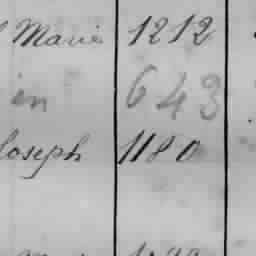 Marie 1212
in 643
Joseph 1180